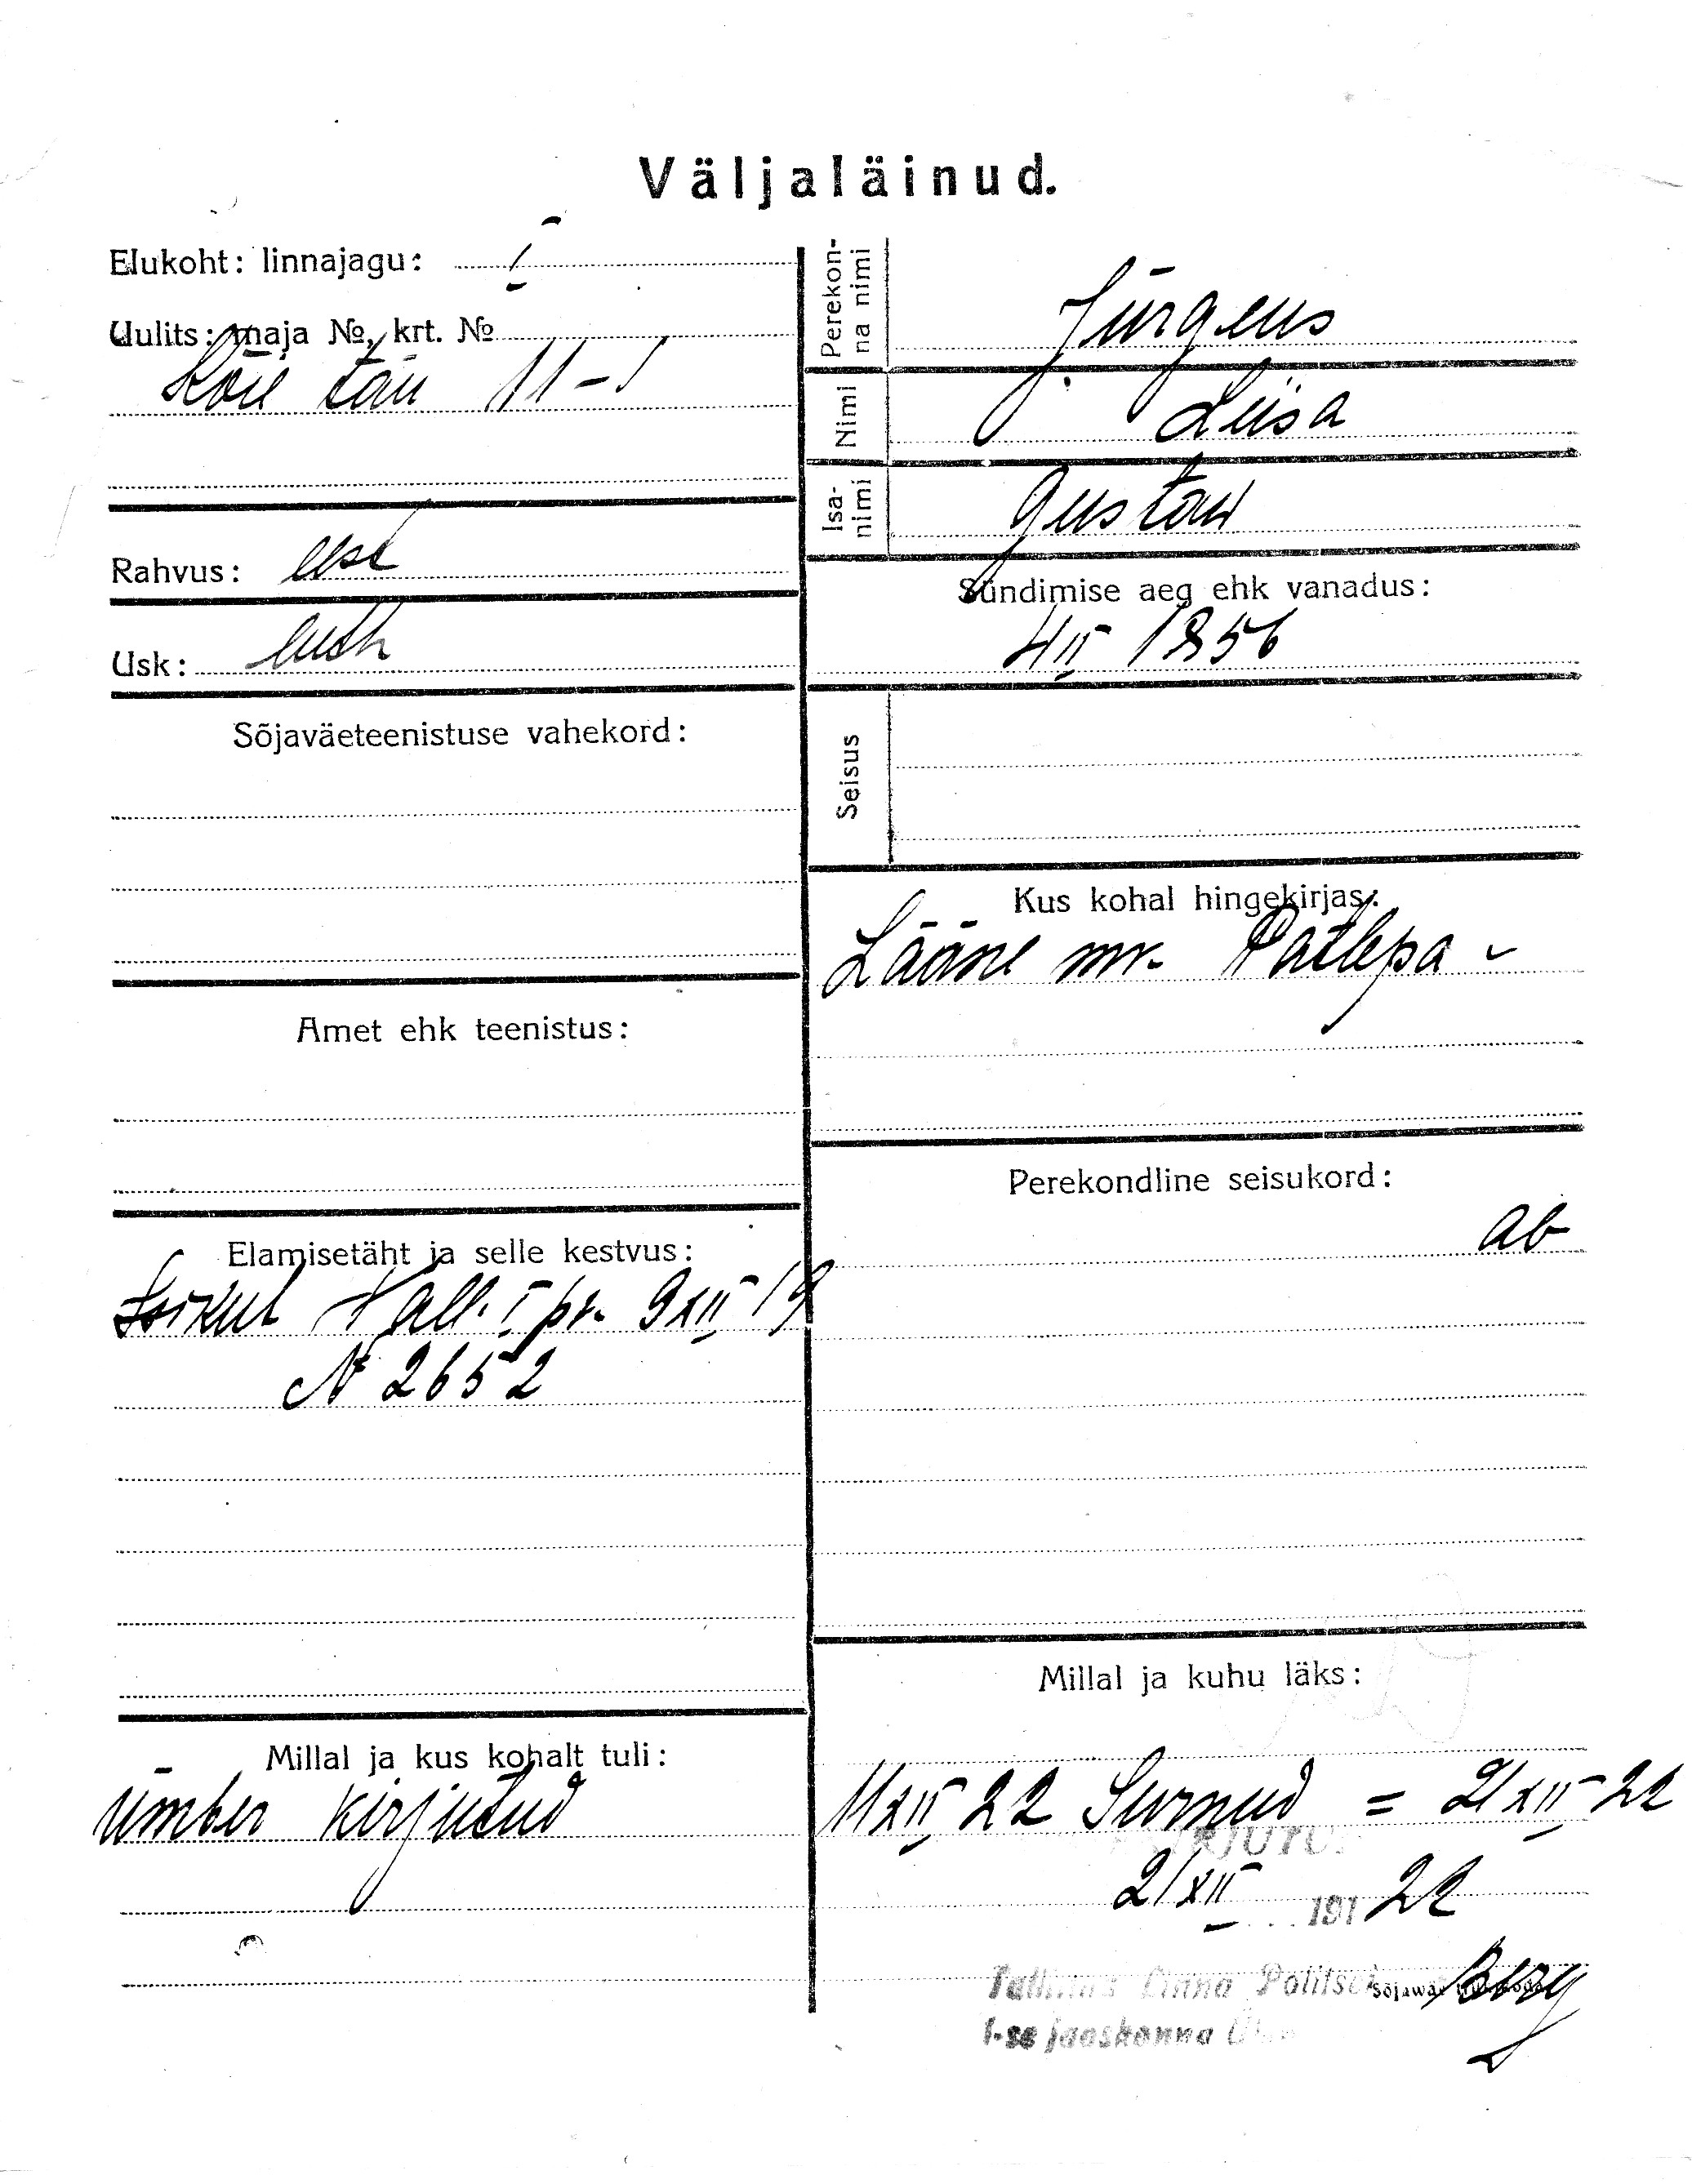 Väljaläinud.
Elukoht: linnajagu: I
Uulits: maja №, krt. №
Kõie tän 11-1
Rahvus: eest
Usk: luth
Sõjaväeteenistuse vahekord:
Amet ehk teenistus:
Elamisetäht ja selle kestvus:
Isikut Tall. I pr. 9 XII 19
N 2652
Millal ja kus kohalt tuli:
ümber kirjutud
Perekonna nimi
Jürgens
Nimi
Liisa
Isanimi
Gustav
Sündimise aeg ehk vanadus:
4 II 1856
Seisus
Kus kohal hingekirjas:
Lääne mr. Patlepa
Perekondline seisukord:
ab
Millal ja kuhu läks:
11 XII 22 Surnud = 21 XII 22
21 XII 191 22
Tallinna Linna Politsei Berg
1-se jaoskonna